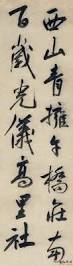 西山青擁午橋莊南
百歲光儀高里社